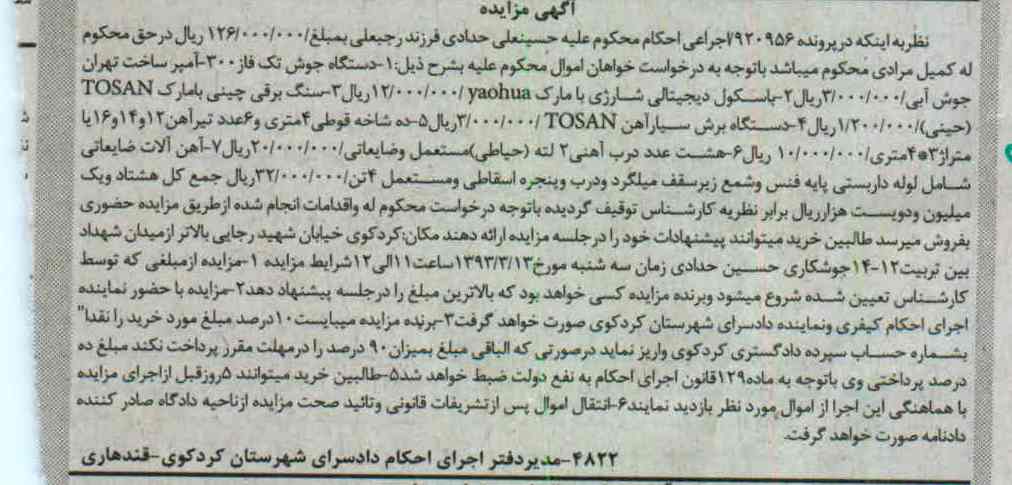 آگهی مزایده
نظر به اینکه در پرونده ۷۹۲۰۹۵۶اجرائی احکام محکوم علیه حسینعلی حدادی فرزند رجبعلی بمبلغ/۱۲۶/۰۰۰/۰۰۰ ریال درحق محکوم
له کمیل مرادی محکوم میباشد باتوجه به درخواست خواهان اموال محکوم علیه بشرح ذیل:۱-دستگاه جوش تک فاز۳۰۰-آمپر ساخت تهران
جوش آبی/۳/۰۰۰/۰۰۰ریال۲-باسکول دیجیتالی شارژی با مارک yaohua /۱۲/۰۰۰/۰۰۰ریال۳-سنگ برقی چینی بامارک TOSAN
(چینی)/۱/۲۰۰/۰۰۰ریال۴-دستگاه برش سیارآهن TOSAN /۳/۰۰۰/۰۰۰ریال۵-ده شاخه قوطی۴متری و۶عدد تیرآهن۱۲و۱۴و۱۶یا
متراژ۳*۴متری/۱۰/۰۰۰/۰۰۰ ریال۶-هشت عدد درب آهنی۲ لته (حیاطی)مستعمل وضایعاتی/۲۰/۰۰۰/۰۰۰ریال۷-آهن آلات ضایعاتی
شامل لوله داربستی پایه فنس وشمع زیرسقف میلگرد ودرب وپنجره اسقاطی ومستعمل ۴تن/۳۲/۰۰۰/۰۰۰ریال جمع کل هشتاد ویک
میلیون ودویست هزارریال برابر نظریه کارشناس توقیف گردیده باتوجه درخواست محکوم له واقدامات انجام شده ازطریق مزایده حضوری
بفروش میرسد طالبین خرید میتوانند پیشنهادات خود را درجلسه مزایده ارائه دهند مکان:کردکوی خیابان شهید رجایی بالاتر ازمیدان شهداد
بین تربیت۱۲-۱۴جوشکاری حسین حدادی زمان سه شنبه مورخ۱۳۹۳/۳/۱۳ساعت۱۱الی۱۲شرایط مزایده ۱-مزایده ازمبلغی که توسط
کارشناس تعیین شده شروع میشود وبرنده مزایده کسی خواهد بود که بالاترین مبلغ را درجلسه پیشنهاد دهد۲-مزایده با حضور نماینده
اجرای احکام کیفری ونماینده دادسرای شهرستان کردکوی صورت خواهد گرفت۳-برنده مزایده میبایست۱۰درصد مبلغ مورد خرید را نقدا"
بشماره حساب سپرده دادگستری کردکوی واریز نماید درصورتی که الباقی مبلغ بمیزان۹۰ درصد را درمهلت مقرر پرداخت نکند مبلغ ده
درصد پرداختی وی باتوجه به ماده۱۲۹قانون اجرای احکام به نفع دولت ضبط خواهد شد۵-طالبین خرید میتوانند ۵روزقبل ازاجرای مزایده
با هماهنگی این اجرا از اموال مورد نظر بازدید نمایند۶-انتقال اموال پس ازتشریفات قانونی وتائید صحت مزایده ازناحیه دادگاه صادر کننده
دادنامه صورت خواهد گرفت.
۴۸۲۲-مدیردفتر اجرای احکام دادسرای شهرستان کردکوی-قندهاری